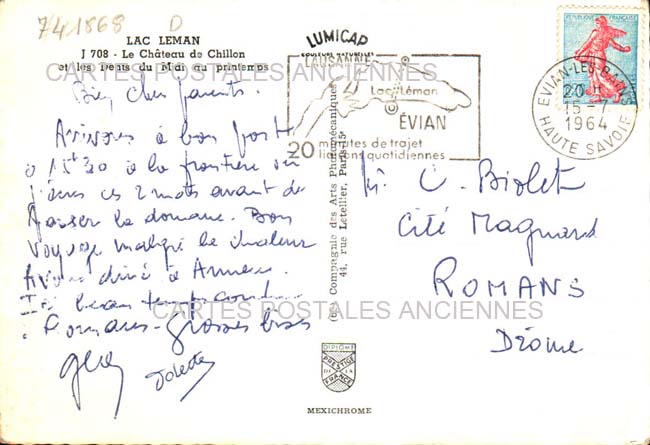 741868 D
LAC LEMAN
J 708 - Le Château de Chillon
et les Dents du Midi au printemps
CARTES POSTALES ANCIENNES
Bien chers parents.
Arrivons à bon port
à 15h30 à la frontière
ces 2 mots avant de
passer la douane. Bon
voyage malgré la chaleur
Avons dîné à
Ici beau temps
Romans - Grosses bises
LUMICAP
COULEURS NATURELLES
(6e) Compagnie des Arts Photomécaniques
44, rue Letellier, Paris-15e
LAUSANNE
Lac Léman
ÉVIAN
20 minutes de trajet
liaisons quotidiennes
REPUBLIQUE FRANÇAISE
EVIAN-LES-BAINS
20 H
15 - 7
1964
HAUTE SAVOIE
M. C. Biolet
Cité Magnard
ROMANS
Drôme
CARTES POSTALES ANCIENNES
DIPLOME
PRESTIGE
DE LA
FRANCE
MEXICHROME